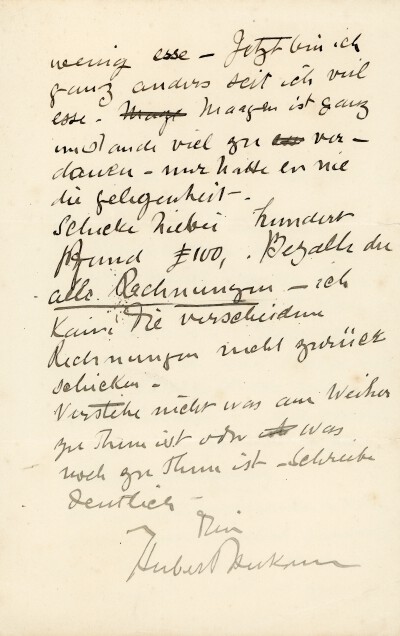 wenig esse – Jetzt bin ich
ganz anders seit ich viel
esse. Mage Maagen ist ganz
im stande viel zu ver-
dauen – nur hatte er nie
die gelegenheit.
Schicke hiebei hundert
Pfund £100,. Bezalle du
alle Rechnungen – ich
kann die verscheidene
Rechnungen nicht zurück
schicken –
Verstehe nicht was am Weiher
zu thun ist oder was
noch zu thun ist – Schreibe
deutlich –
Dein
Hubert Herkomer